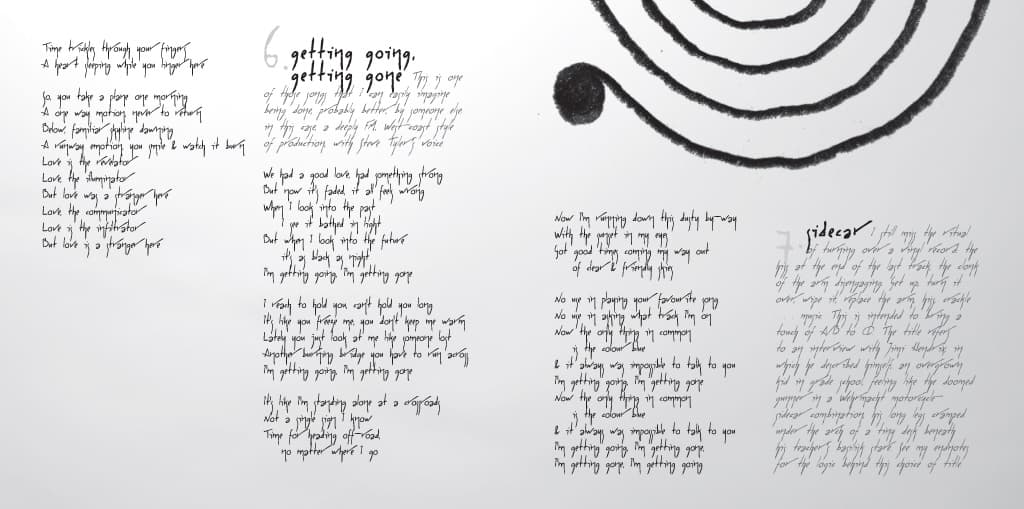 Time trickles through your fingers
A heart sleeping while you linger here
So, you take a plane one morning
A one way motion never to return
Below, familiar skyline dawning
A runway emotion, you smile & watch it burn
Love is the revelator
Love the illuminator
But love was a stranger here
Love the communicator
Love is the infiltrator
But love is a stranger here
6. getting going,
getting gone This is one
of those songs that I can easily imagine
being done, probably better, by someone else
in this case a deeply F.M. West coast style
of production with Steve Tyler's voice
We had a good love, had something strong
But now it's faded, it all feels wrong
When I look into the past
I see it bathed in light
But when I look into the future
it's as black as night
I'm getting going, I'm getting gone
I reach to hold you, can't hold you long
It's like you freeze me, you don't keep me warm
Lately you just look at me like someone lost
Another burning bridge you have to run across
I'm getting going, I'm getting gone
It's like I'm standing alone at a crossroads
Not a single sign I know
Time for heading off-road
no matter where I go
Now I'm running down this dusty by-way
With the sunset in my eyes
Got good times coming my way out
of clear & friendly skies
No use in playing your favourite song
No use in asking what track I'm on
Now the only thing in common
is the colour blue
& it always was impossible to talk to you
I'm getting going, I'm getting gone
Now the only thing in common
is the colour blue
& it always was impossible to talk to you
I'm getting going, I'm getting gone,
I'm getting gone, I'm getting going
7. sidecar I still miss the ritual
of turning over a vinyl record: the
hiss at the end of the last track, the clunk
of the arm disengaging. Get up, turn it
over, wipe it, replace the arm, hiss, crackle
music. This is intended to bring a
touch of A/B to CD. The title refers
to an interview with Jimi Hendrix in
which he described himself, an overgrown
kid in grade school, feeling like the doomed
gunner in a Wehrmacht motorcycle-
sidecar combination, his long legs cramped
under the arch of a tiny desk beneath
his teacher's basilisk stare. See my endnotes
for the logic behind this choice of title